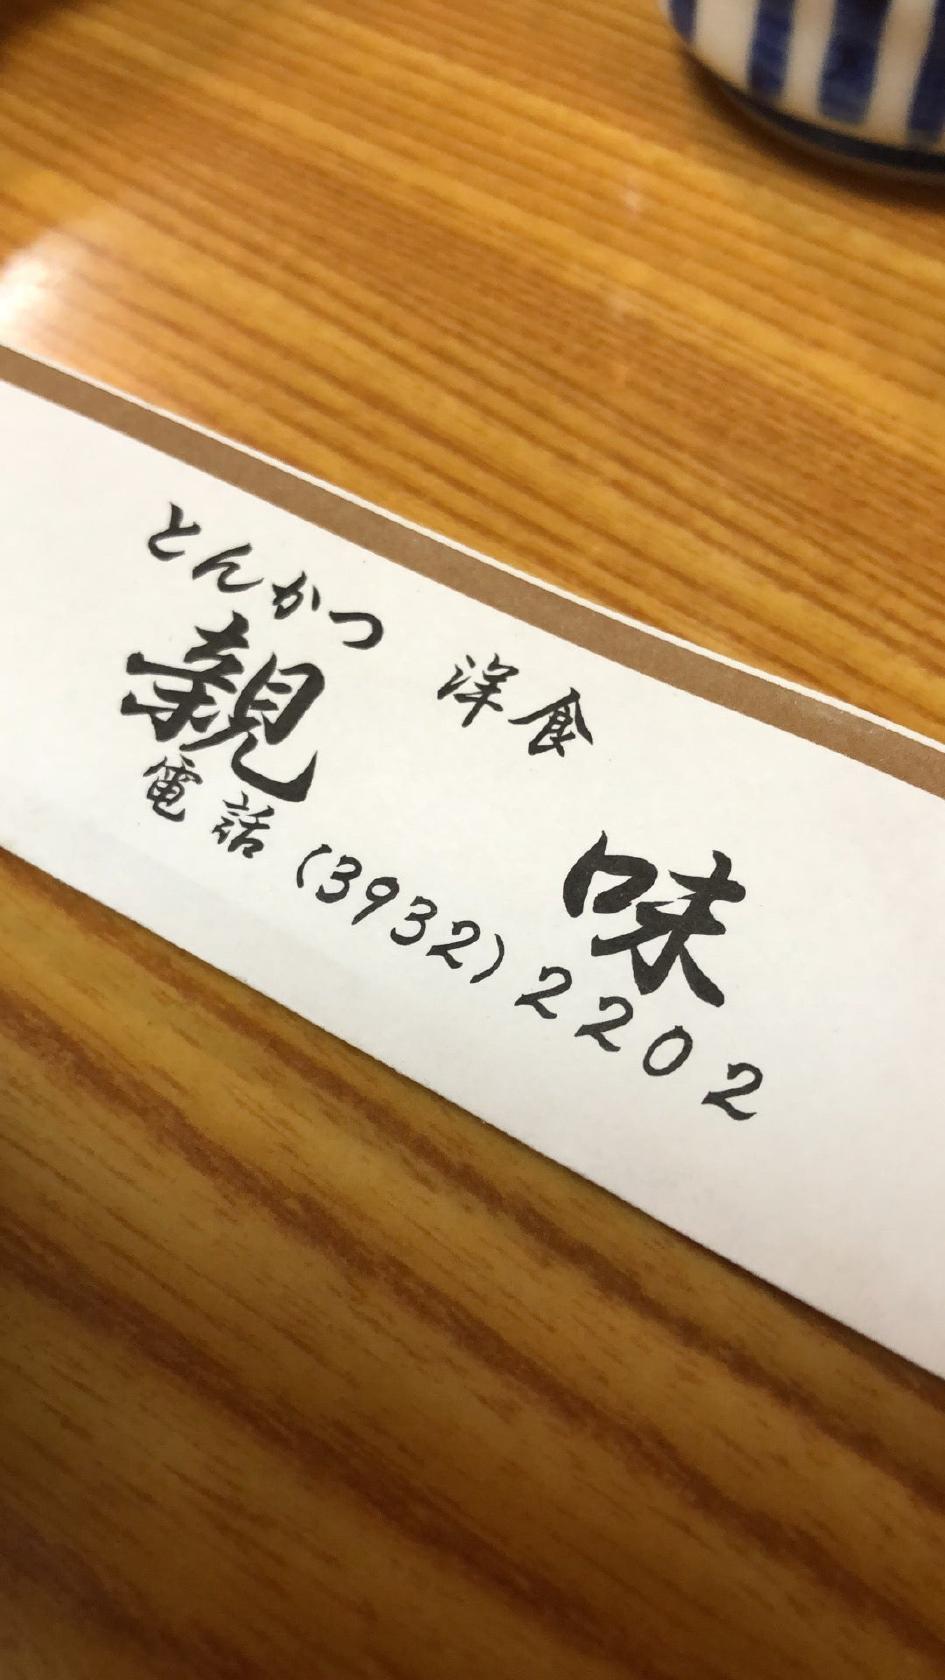 とんかつ 洋食
親味
電話(3932)2202